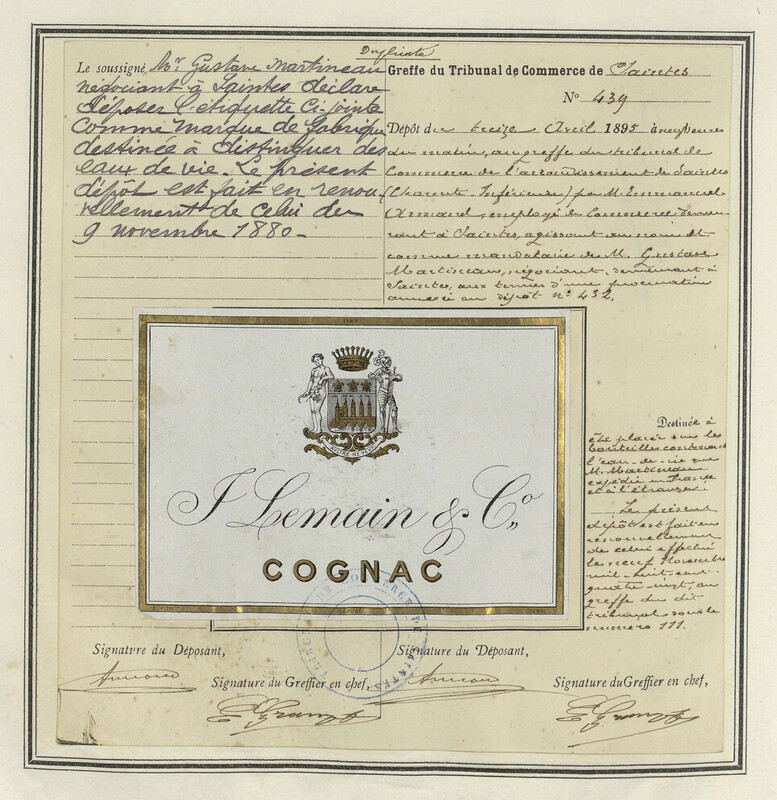 Duplicata
Le soussigné Mr Gustave Martineau
négociant à Saintes déclare
déposer l'étiquette ci-jointe
comme marque de fabrique
destinée à distinguer des
eaux de vie. Le présent
dépôt est fait en renou
vellement de celui du
9 novembre 1880-
Greffe du Tribunal de Commerce de Saintes
No 439
Dépôt du treize Avril 1895 à neuf heures
du matin, au greffe du tribunal de
Commerce de l'arrondissement de Saintes
(Charente-Inférieure) par M. Emmanuel
Armand, employé de Commerce demeu
rant à Saintes, agissant au nom et
comme mandataire de M. Gustave
Martineau, négociant, demeurant à
Saintes, aux termes d'une procuration
annexée au dépôt no 432.
J Lemain & Co
COGNAC
DÉPOSÉ
COGNAC
Destinée à
être placée sur les
bouteilles contenant
l'eau-de-vie que
M. Martineau
expédie en France
et à l'étranger.
Le présent
dépôt est fait en
renouvellement
de celui effectué
le neuf Novembre
mil-huit-cent-
quatre-vingt, au
greffe du dit
tribunal sous le
numéro 111.
TRIBUNAL DE COMMERCE DE SAINTES
Signature du Déposant,
Armand
Signature du Greffier en chef,
Signature du Déposant,
Armand
Signature du Greffier en chef,